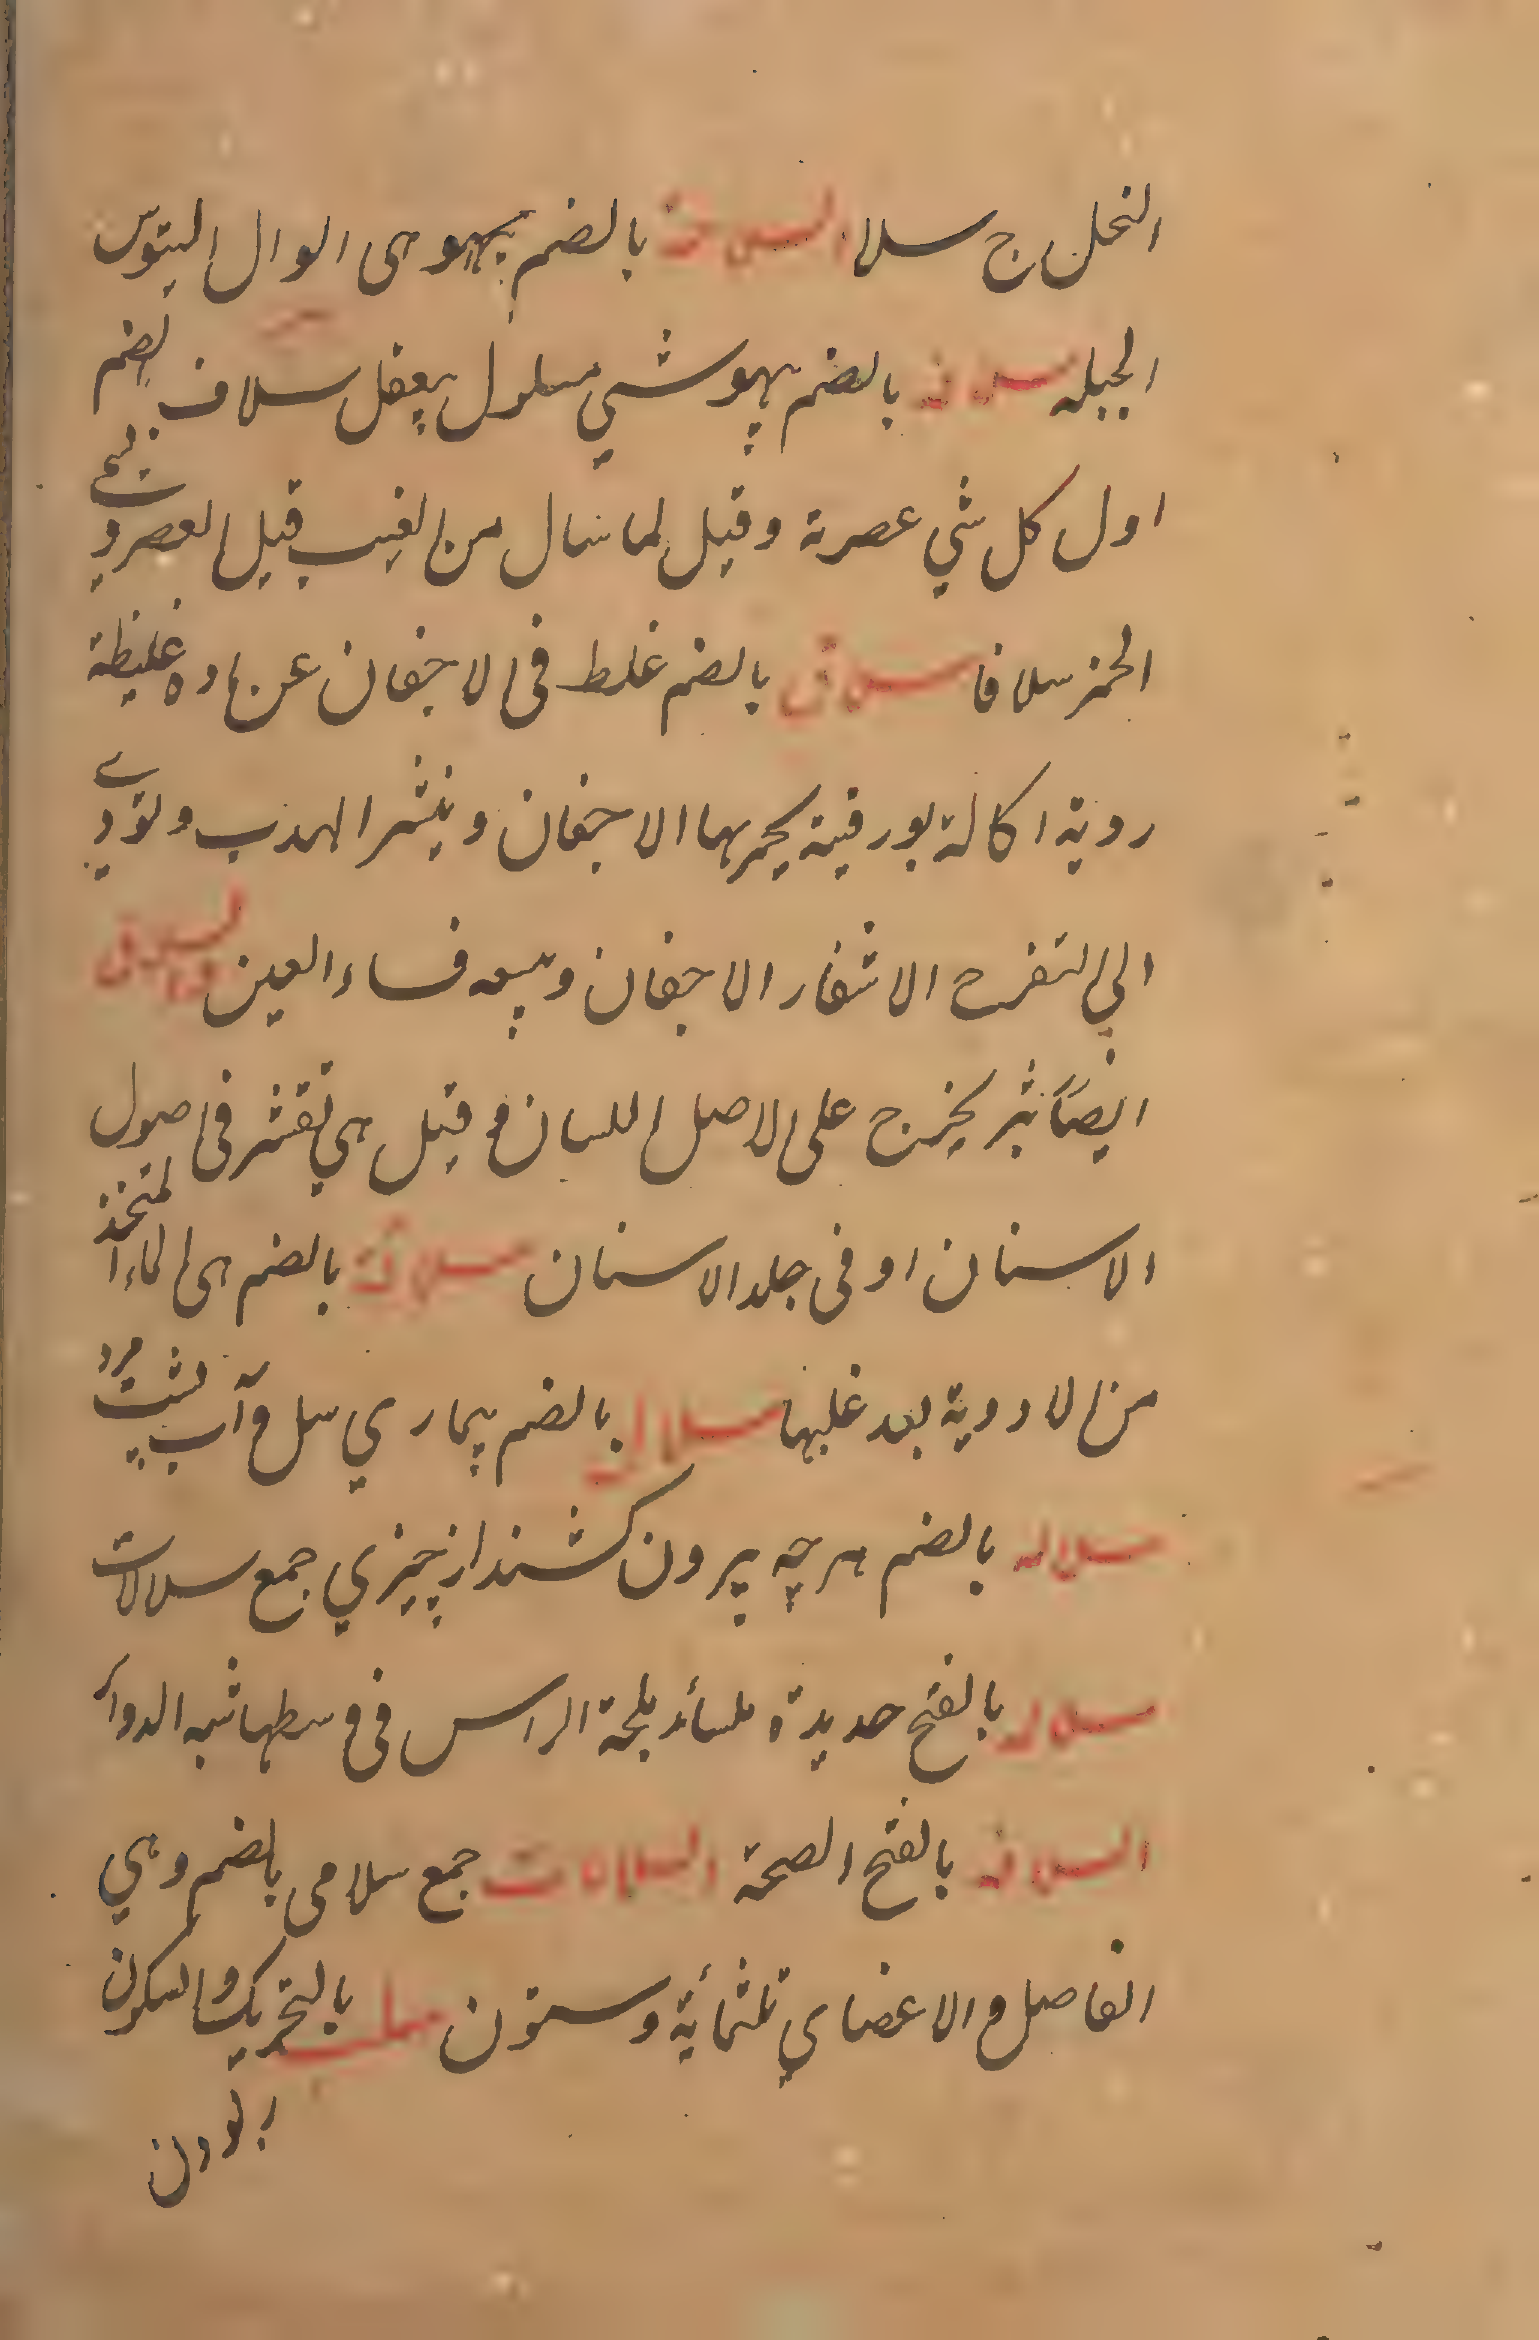 النخل ج سلا السلات بالضم هى الوال
الجبله سلات بالضم بيهوشي مسلول بيعقل سلاف بضم
اول كل شي عصرته وقيل لما سال من العنب قبل العصر و يسمى
الخمر سلافا سلاق بالضم غلط فى الاجفان عن ماده غليظة
رديته اكالة بورقية يحمر بها الاجفان وينثر الهدب وتؤدي
الي التقرح الاشفار الاجفان ويتبعه فساد العين والسلاق
ايضًا بثر يخرج على الاصل اللسان و قيل هي تقشر فى اصول
الاسنان او فى جلد الاسنان سلاقة بالضم هى الماء المتخذ
من الادوية بعد غليها سلال بالضم بيماري سل و آب پشت مرد
سلاله بالضم هر چه بيرون كشند از چيزي جمع سلالات
سلاله بالفتح حديدة ملساء الراس فى وسطها شبه الدوائر
السلامة بالفتح الصحة السلامات جمع سلامى بالضم وهي
المفاصل و الاعضاي ثلثمائة وستون سلب بالتحريك والسكون
ربودن